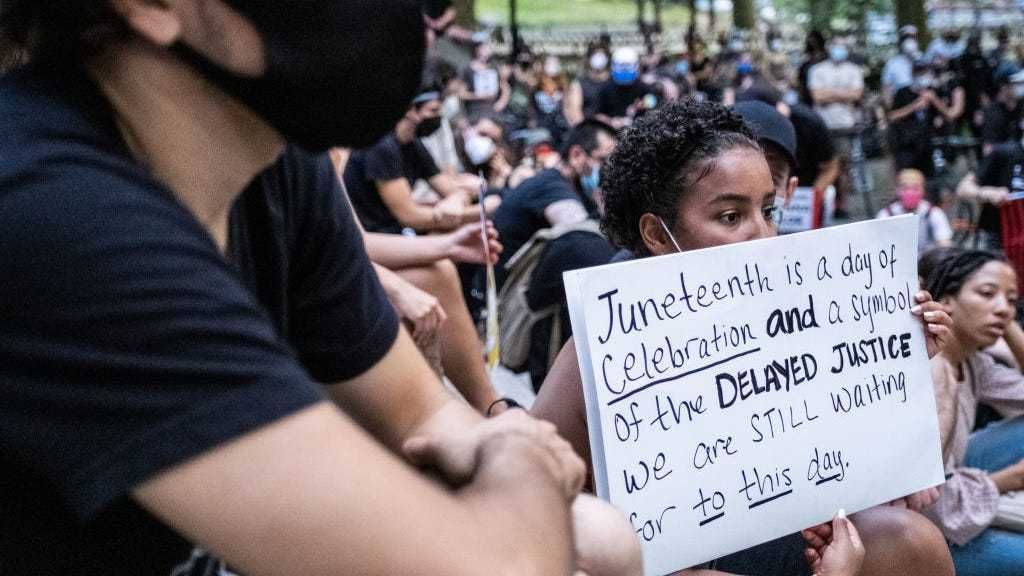 Juneteenth is a day of
Celebration and a symbol
of the DELAYED JUSTICE
we are STILL waiting
for to this day.